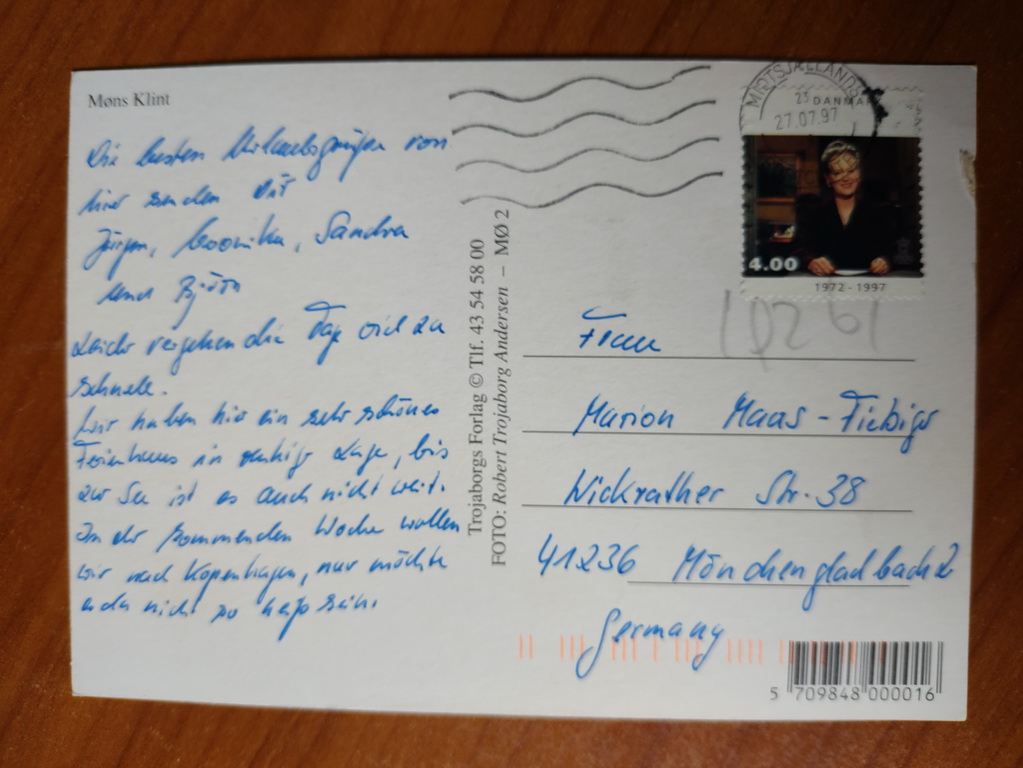 Møns Klint
Die besten Urlaubsgrüße von
hier senden Dir
Jürgen, Monika, Sandra
und Björn
Leider vergehen die Tage viel zu
schnell.
Wir haben hier ein sehr schönes
Ferienhaus in ruhiger Lage, bis
zur See ist es auch nicht weit.
In der kommenden Woche wollen
wir nach Kopenhagen, nur möchte
es da nicht so heiß sein.
Trojaborgs Forlag © Tlf. 43 54 58 00
FOTO: Robert Trojaborg Andersen – MØ 2
MIDTSJÆLLANDS
23
27.07.97
DANMARK
4.00
1972 - 1997
Frau
Marion Maas-Fiebiger
Wickrather Str. 38
41236 Mönchengladbach 2
Germany
5 709848 000016